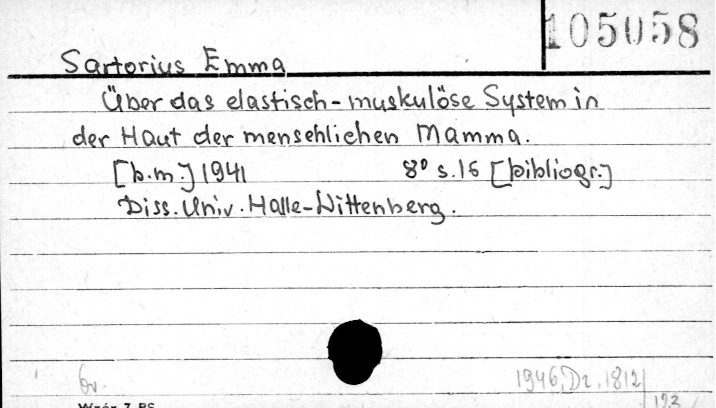 105058
Sartorius Emma
Über das elastisch-muskulöse System in
der Haut der menschlichen Mamma.
[b.m.] 1941 8° s.16 [bibliogr.]
Diss. Univ. Halle-Wittenberg.
1946, Dz. 1812/
Wzór 7 BS